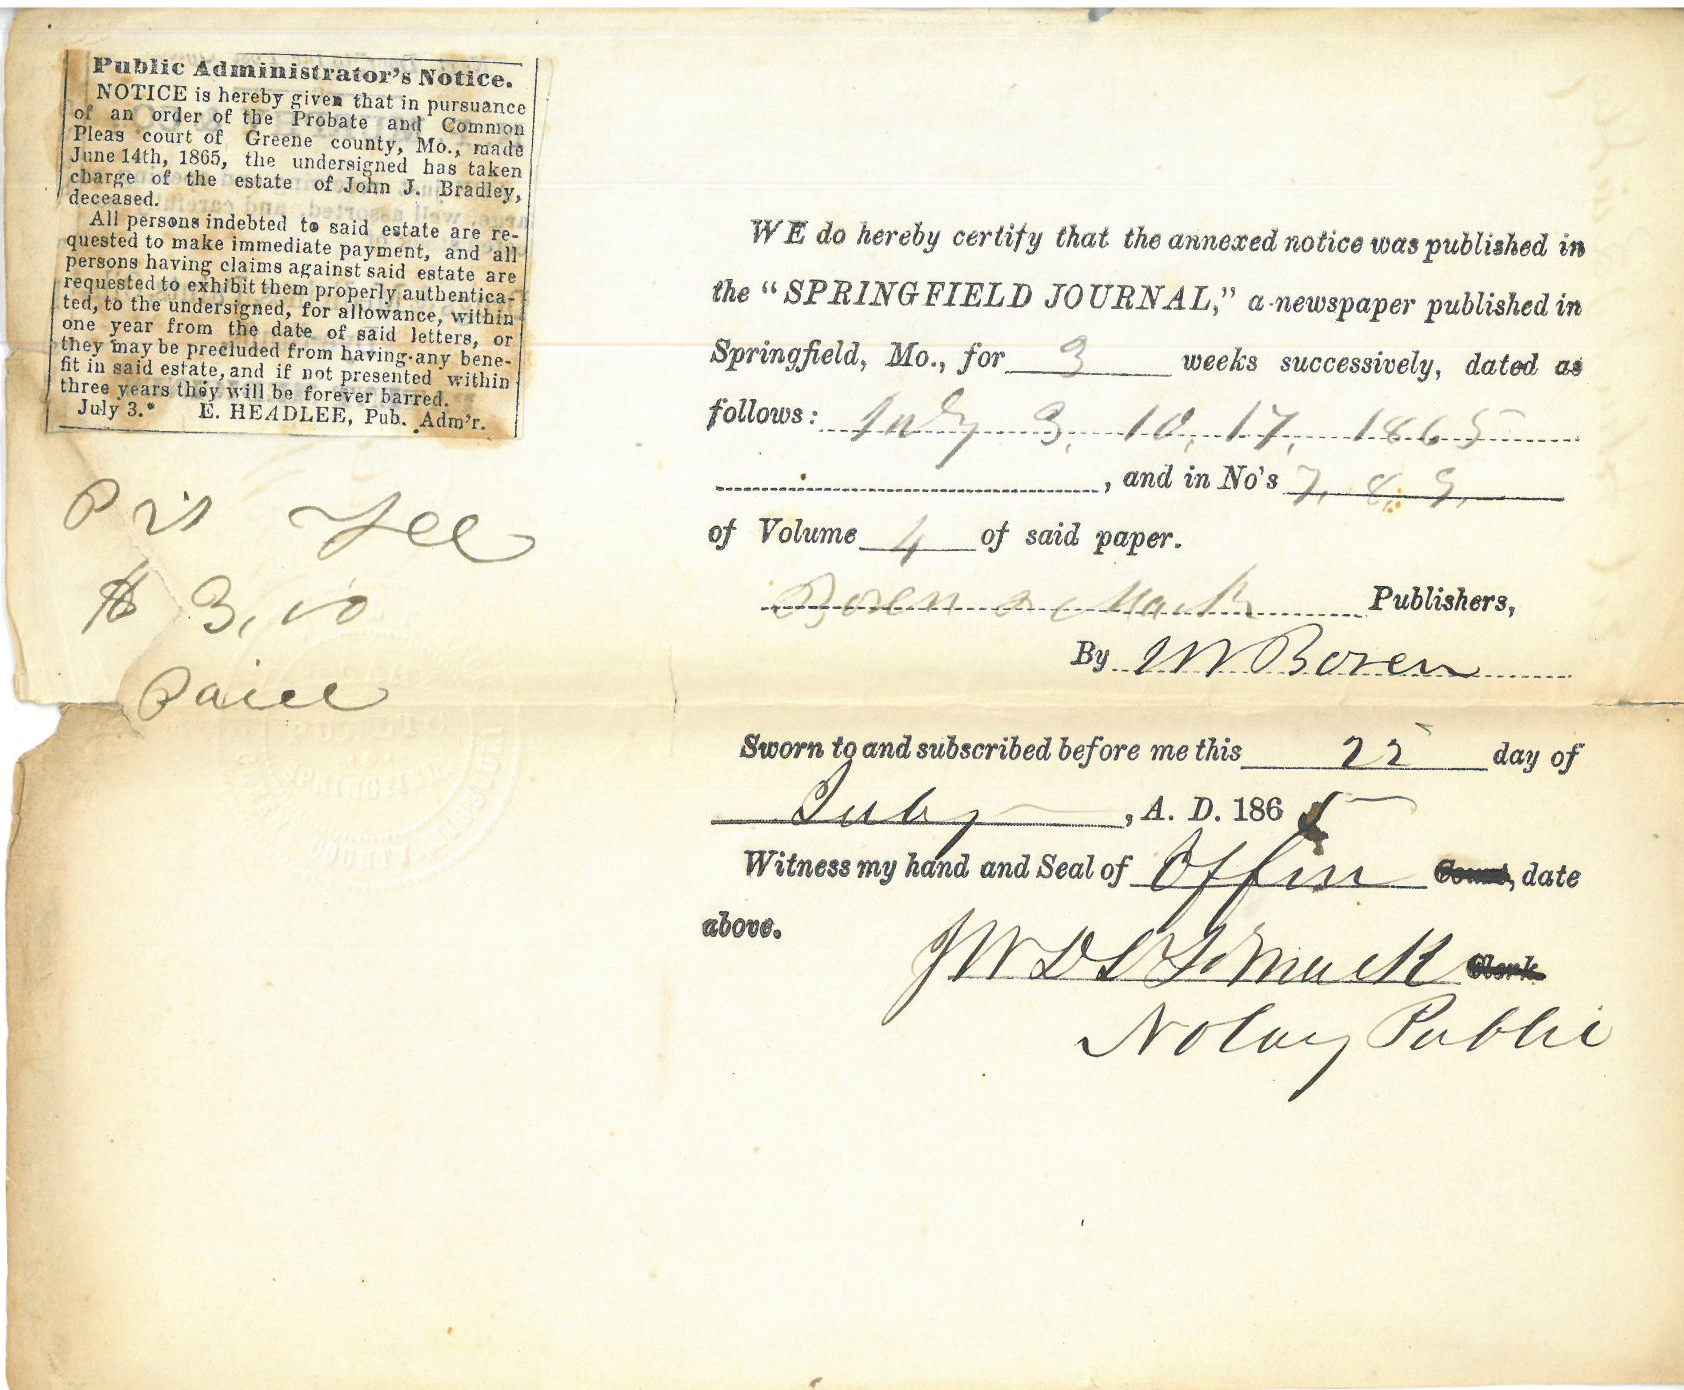 Public Administrator's Notice.
NOTICE is hereby given that in pursuance
of an order of the Probate and Common
Pleas court of Greene county, Mo., made
June 14th, 1865, the undersigned has taken
charge of the estate of John J. Bradley,
deceased.
All persons indebted to said estate are re-
quested to make immediate payment, and all
persons having claims against said estate are
requested to exhibit them properly authentica-
ted, to the undersigned, for allowance, within
one year from the date of said letters, or
they may be precluded from having any bene-
fit in said estate, and if not presented within
three years they will be forever barred.
July 3.* E. HEADLEE, Pub. Adm'r.
Prt Fee
$ 3,00
Paid
WE do hereby certify that the annexed notice was published in
the "SPRINGFIELD JOURNAL," a newspaper published in
Springfield, Mo., for 3 weeks successively, dated as
follows: July 3, 10, 17, 1865
, and in No's 7, 8, 9,
of Volume 4 of said paper.
Boren & Mack Publishers,
By W Boren
Sworn to and subscribed before me this 25 day of
July, A. D. 1865
Witness my hand and Seal of Office Court, date
above.
Mack Clerk
Notary Public
PUBLIC
SPRINGFIELD
GREENE COUNTY MISSOURI